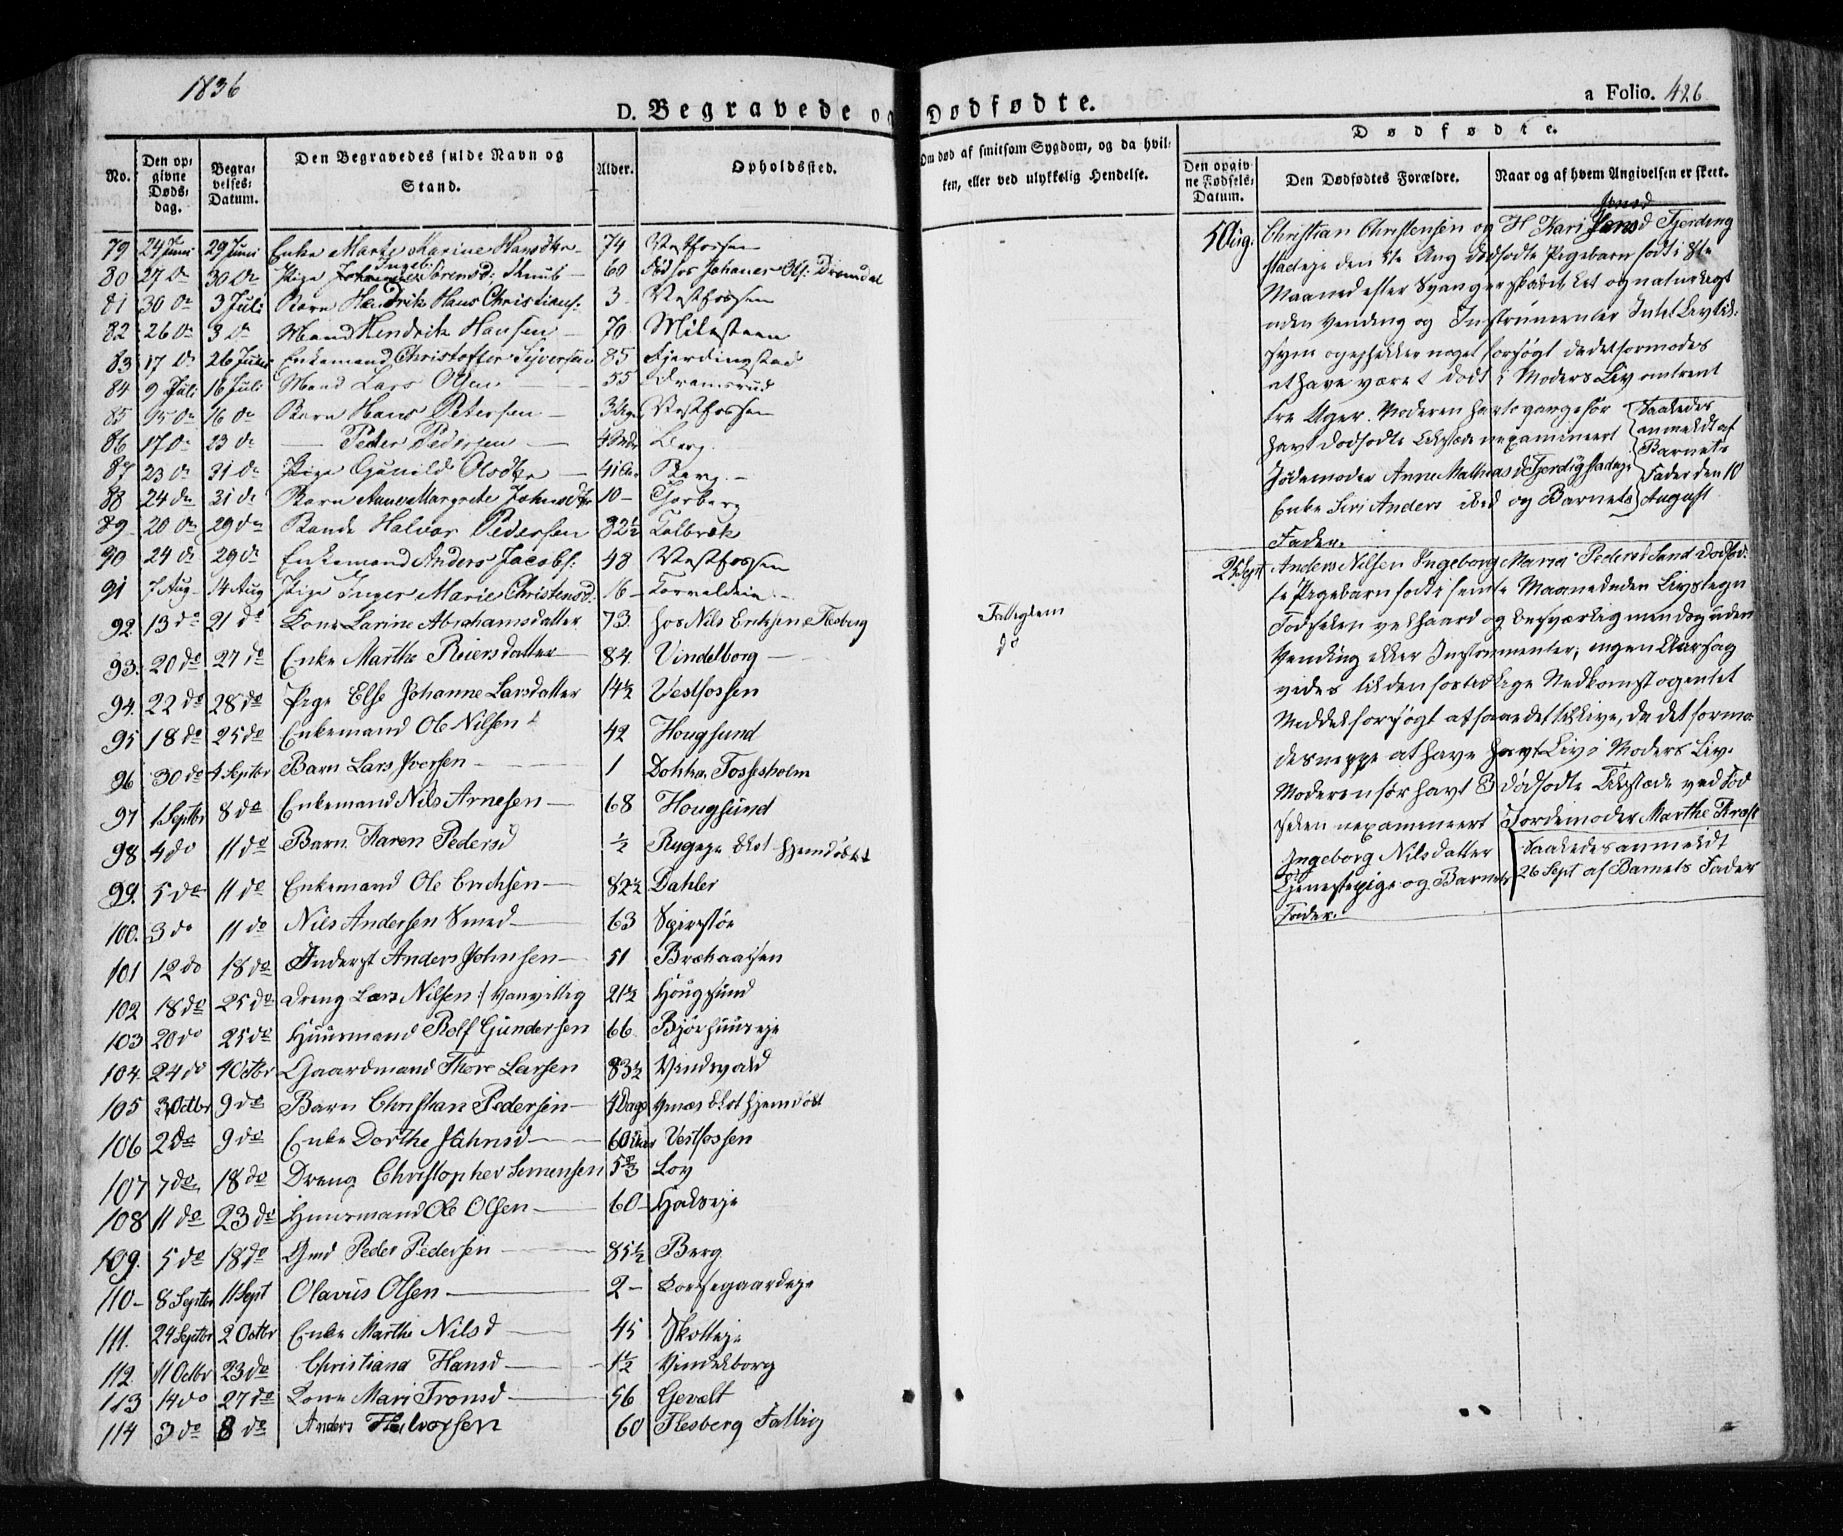 1836
D. Begravede og Dødfødte.
a Folio. 426
No. Den opgivne Dødsdag. Begravelses-Datum. Den Begravedes fulde Navn og Stand. Alder. Opholdssted.
Om død af smitsom Sygdom, og da hvilken, eller ved ulykkelig Hendelse.
Dødfødte.
Den opgivne Fødsels-Datum. Den Dødfødtes Forældre. Naar og af hvem Angivelsen er skeet.
79 24 Juni 29 Juni Enke Marte Marine Hansdtr 74 Vestfossen
80 27 do 30 do Pige Ingeb: Sørensd: 60
81 30 do 3 Juli Barn Hendrik Hans Christians: 3 Vestfossen
82 26 do 3 do Mand Hendrik Hansen 70 Milesteen
83 17 do 26 Juni Enkemand Christoffer Syversen 85 Fjerdingstad
84 9 Juli 16 Juli Mand Lars Olsen 55 Dramsrud
85 15 do 16 do Barn Hans Petersen 3 Vestfossen
86 17 do 23 do — Peder Pedersen 4 Berg
87 23 do 31 do Pige Gunild Olsdtr 41 Berg
88 24 do 31 do Barn Anne Margrete Johnsdtr 10 —
89 20 do 29 do Halvor Pedersen 82½ Kolbræk
90 24 do 29 do Enkemand Anders Jacobs: 48 Vestfossen
91 7 Aug 14 Aug Pige Inger Marie Christensd: 16 —
92 13 do 21 do Kone Karine Abrahamsdatter 73 hos Nils Erichsen Flesberg Fattiglem
93. 20 do 27 do Enke Marthe Reiersdatter 84. Vindelborg — do
94. 22 do 28 do Pige Else Johanne Larsdatter 14½ Vestfossen
95 18 do 25 do Enkemand Ole Nilsen 42 Hougsund
96 30 do 4 Septbr Barn Lars Iversen 1 Fossesholm
97 1 Septbr 8 do Enkemand Nils Arnesen 68 Hougsund
98 4 do 11 do Barn Karen Pedersd ½ Rugeje hjemdøbt
99. 5 do 11 do Enkemand Ole Erichsen 82½ Dahler
100. 3 do 11 do Nils Andersen Smed 63
101 12 do 18 do Inderst Anders Johnsen 51
102 18 do 25 do Dreng Lars Nilsen /: Vanvittig 21½ Hougsund
103 20 do 25 do Huusmand Rolf Gundersen 66
104. 24 do 4 Octbr Gaardmand Thore Larsen 83½ Vindsvold
105 3 Octbr 9 do Barn Christian Pedersen 4 Dage hjemdøbt
106 2 do 9 do Enke Dorthe Jahnsd 60 Vestfossen
107 7 do 18 do Dreng Christopher Simensen Loy
108 11 do 23 do Huusmand Ole Olsen 60 Halseje
109. 5 do 18 do Gmd Peder Pedersen 85½ Berg
110 8 Septbr 11 Sept Olavus Olsen 2 — Korsegaardeje
111. 24 Septbr 2 Octbr Enke Marthe Nilsd 45 Skotteje
112 11 Octbr 23 do Christiana Hansd 1½ Vindelborg
113 14 do 27 do Kone Mari Tronsd 56 Gevelt
114 3 do 8 do Anders Halvorsen 60 Flesberg Fattig
5 Aug. Christian Christensen og H Kari Jensd Fjerding
stadeje den 5te Aug dødfødte Pigebarn født i 8te
Maaned efter Svangerskabet let og naturligt
uden Vending og Instrumenter Intet Livtil-
syn og ikke noget forsøgt da det formodes
at have været dødt i Moders Liv omtrent
tre Uger. Moderen har to gange før
havt dødfødte Tilstæde
Jødemoder Anne Mathiasd Fjerdigstadeje
Enke Siri Anders ibid og Barnets
Fader.
Saaledes
anmeldt af
Barnets
Fader den 10
August
25 Sept Anders Nilsen Ingeborg Maria Pedersd Sand dødfød-
te Pigebarn født i femte Maaned uden Livstegn
Fødselen vel haard og besværlig men dog uden
Vending eller Instrumenter; ingen Aarsag
vides til den fortidlige Nedkomst og intet
Middel forsøgt at faae det til Live, da det formo
des neppe at have havt Liv i Moders Liv.
Moderen før havt 3 dødfødte Tilstæde ved Fød
selen uexamineert Jordemoder Marthe Kraft
Ingeborg Nilsdatter
Tjenestepige og Barnets
Fader.
Saaledes anmeldt
26 Sept af Barnets Fader